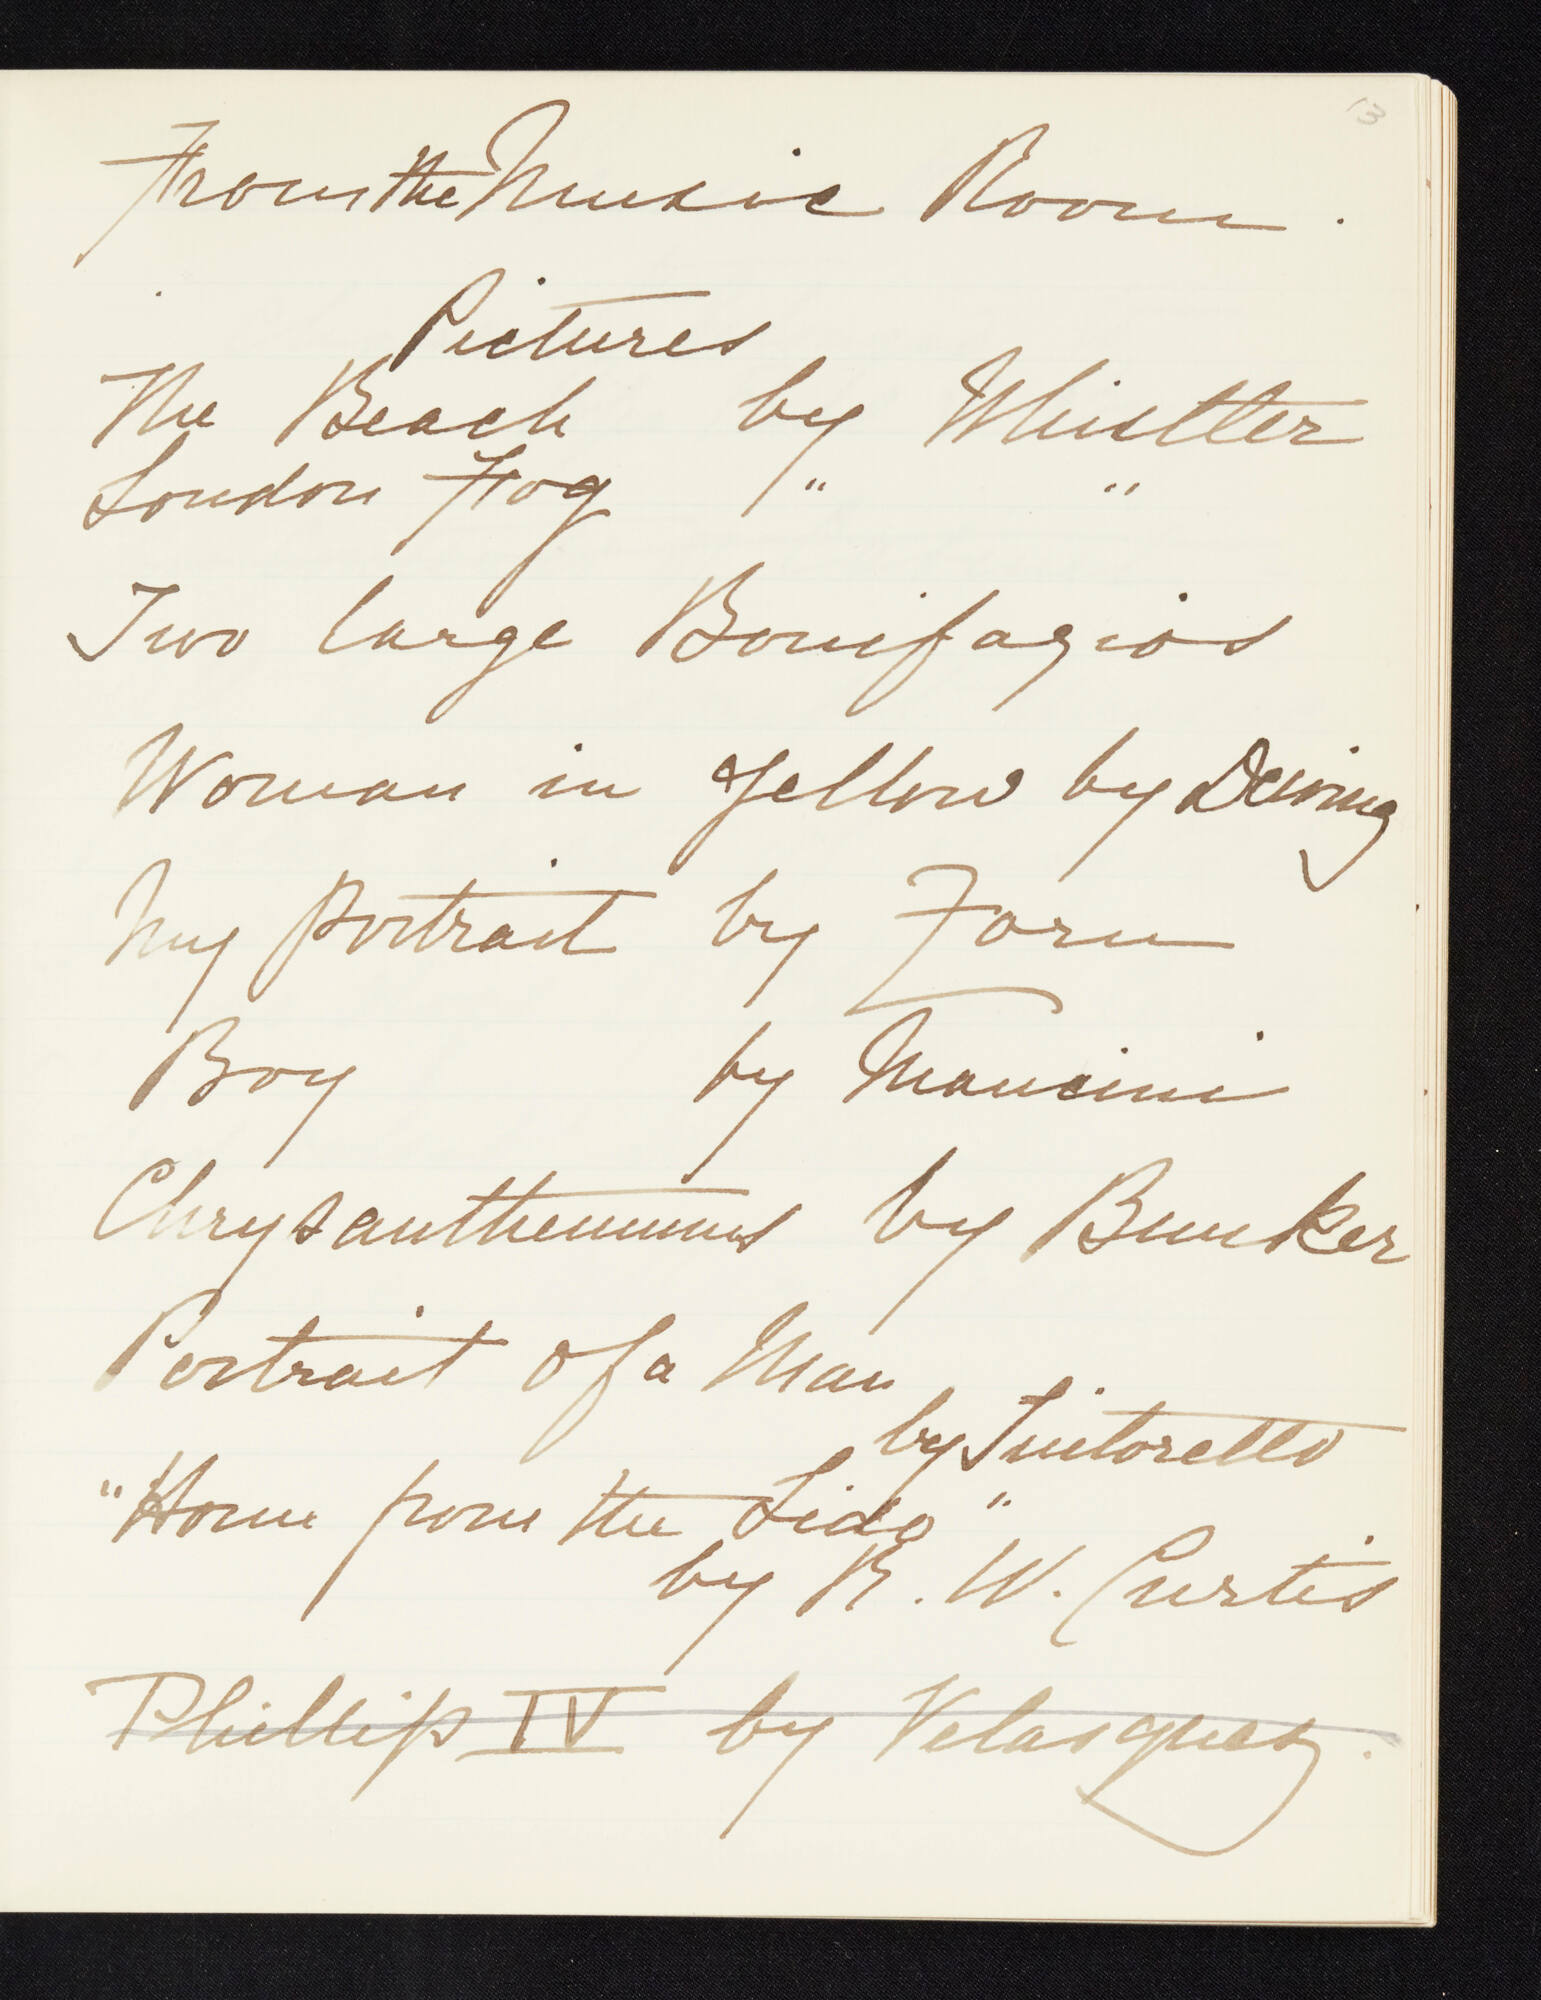 13
From the Music Room.
Pictures
The Beach by Whistler
London Fog " "
Two large Bonifazios
Woman in Yellow by Dewing
My portrait by Zorn
Boy by Mancini
Chrysanthemums by Bunker
Portrait of a Man
by Tintoretto
"Home from the Lido"
by R. W. Curtis
Phillip IV by Velasquez.